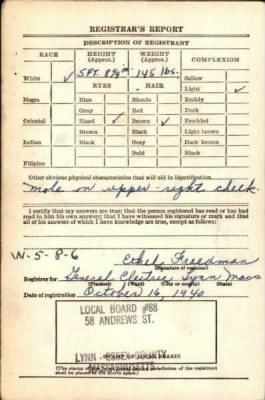 REGISTRAR'S REPORT
DESCRIPTION OF REGISTRANT
RACE HEIGHT (Approx.) WEIGHT (Approx.) COMPLEXION
White ✓ 5FT. 8½in 145 lbs. Sallow
EYES HAIR Light ✓
Negro Blue Blonde Ruddy
Gray Red Dark
Oriental Hazel ✓ Brown ✓ Freckled
Brown Black Light brown
Indian Black Gray Dark brown
Bald Black
Filipino
Other obvious physical characteristics that will aid in identification
mole on upper right cheek.
I certify that my answers are true; that the person registered has read or has had
read to him his own answers; that I have witnessed his signature or mark and that
all of his answers of which I have knowledge are true, except as follows:
W-5-P-6
Ethel Freedman
(Signature of registrar)
Registrar for General Electric Lynn Mass
(Precinct) (Ward) (City or county) (State)
Date of registration October 16, 1940
LOCAL BOARD #88
58 ANDREWS ST.
LYNN ESSEX COUNTY
MASSACHUSETTS
(STAMP OF LOCAL BOARD)
(The stamp of the Local Board having jurisdiction of the registrant
shall be placed in the above space.)